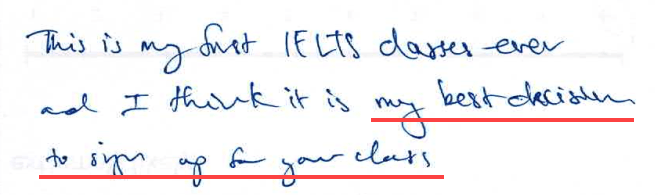 This is my first IELTS classes ever
and I think it is my best decision
to sign up for your class